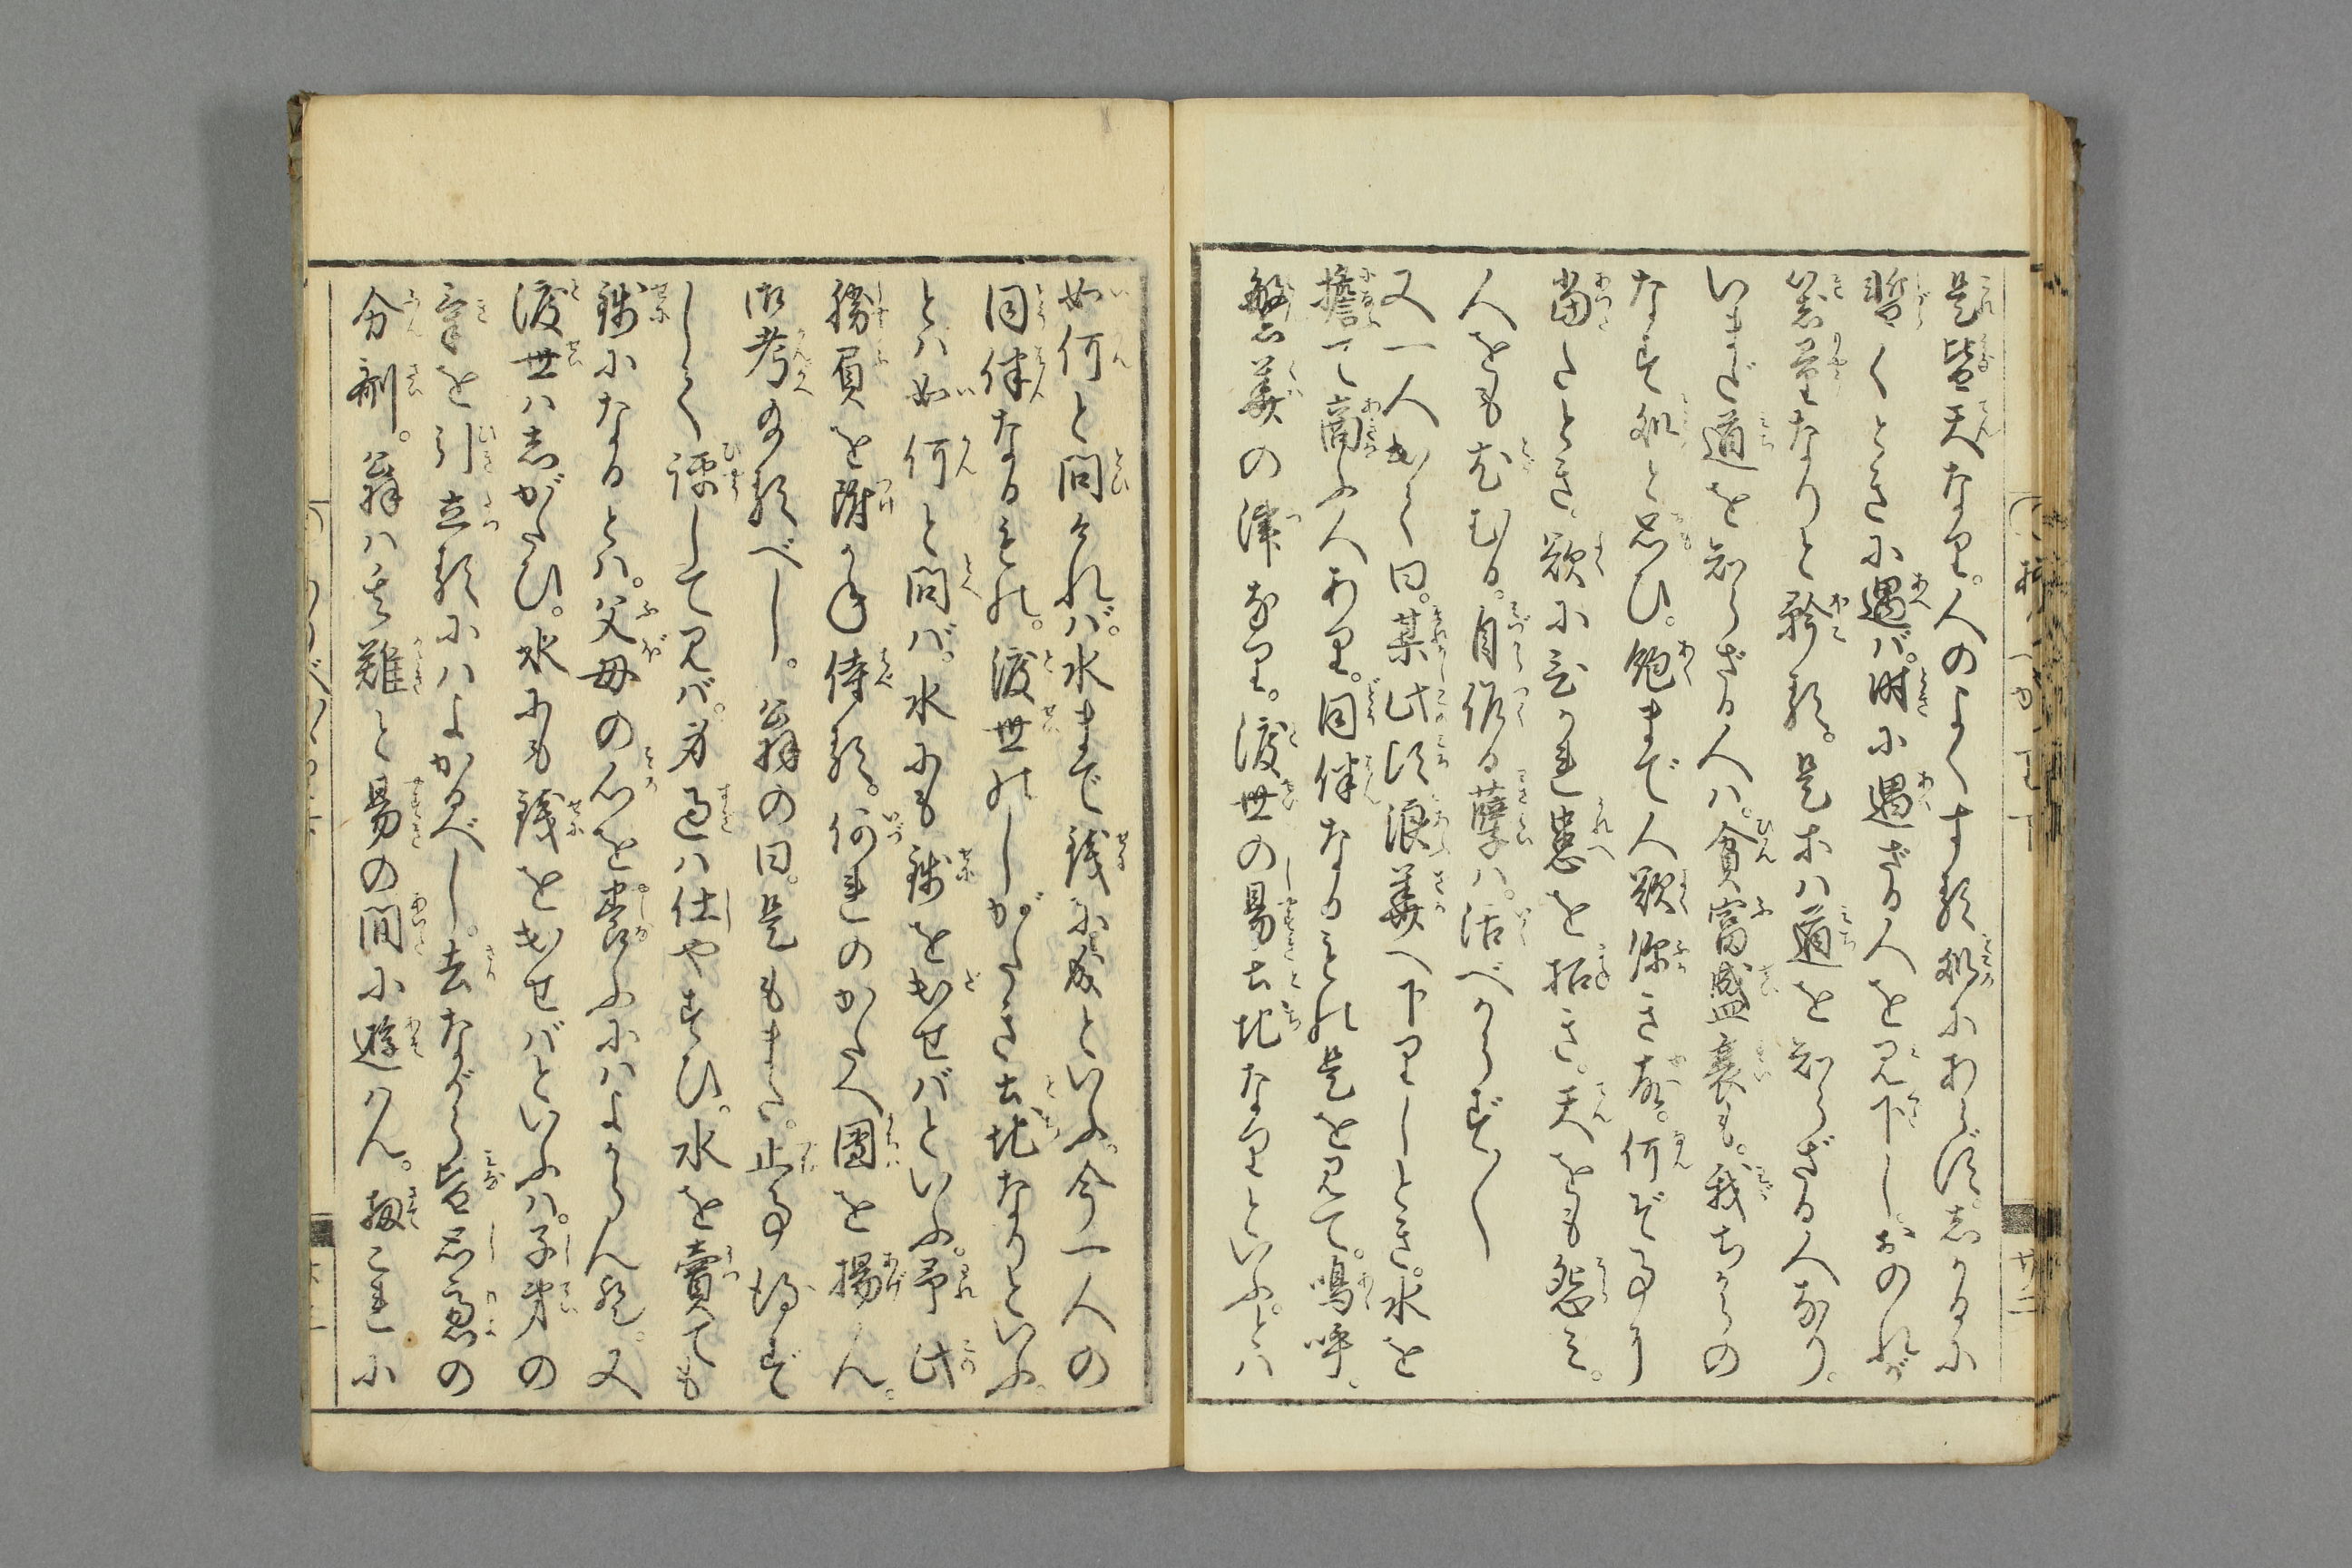 是皆天なり。人のよくする処にあらず。しかるに
暫くときに遇バ。時に遇ざる人を見下し。おのれが
器量なりと矜る。是等ハ道を知らざる人なり。
いまだ道を知らざる人ハ。貧富盛衰も。我ちからの
なす処と思ひ。飽まで人欲深き故。何ぞ事に
当たとき。欲に忘かれ患を招き。天をも怨ミ。
人をもむる。自作る孽ハ。活べからず〳〵
又一人出て曰。某此頃浪華へ下りしとき。水を
擔て商ふ人あり。同伴なるもの是を見て。嗚呼。
繁華の津なり。渡世の易土地なりといふ。とハ
如何と問けれバ。水まで銭に成といふ。今一人の
同伴なるもの。渡世のしがたき土地なりといふ。
とハ如何と問バ。水にも銭を出せバといふ。予此
勝負を附かね侍る。何れのかたへ團を揚ん。
御考あるべし。翁の曰。是もまた。止事得ず
しく譚して見バ。身過ハ仕やすひ。水を賣ても
銭になるとハ。父母の心を養ふにハよからん歟。又
渡世ハしがたひ。水にも銭を出せバといふハ。子弟の
氣を引立るにハよかるべし。去ながら皆思慮の
分剤。翁ハ其難と易の間に遊かん。扨これに